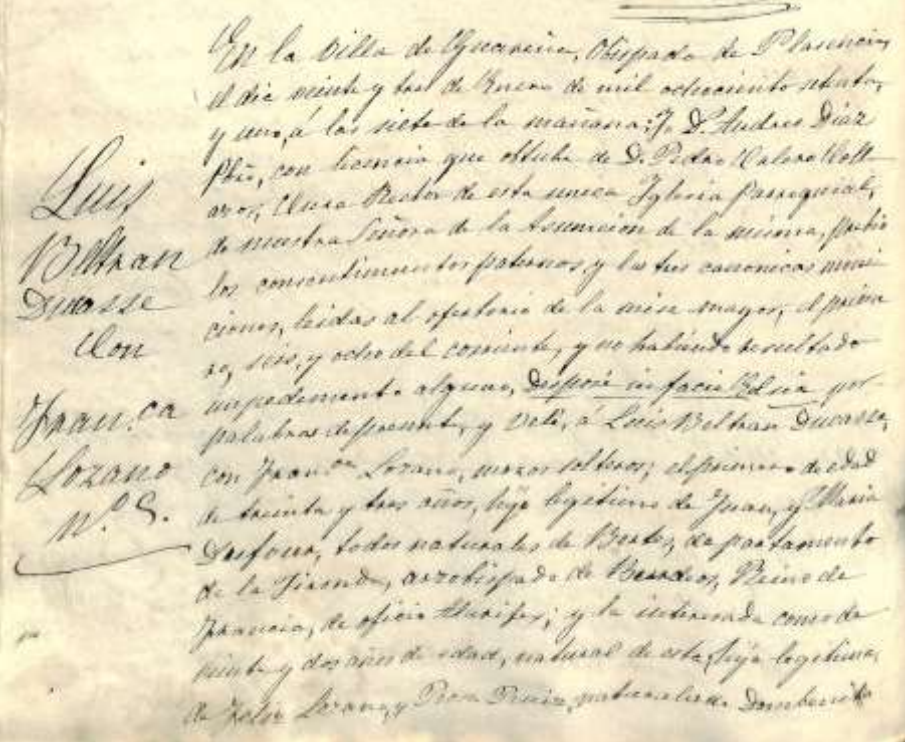 Luis
Beltran
Ducasse
Con
Fran.ca
Lozano
N.º 5.
En la Villa de Guareña, Obispado de Plasencia,
el dia veinte y tres de Enero de mil ochociento setenta,
y uno, á las siete de la mañana: Yo D. Andres Diaz
Pbro, con licencia que obtube de D. Pedro Valero
Cura Rector de esta unica Iglesia Parroquial,
de nuestra Señora de la Asuncion de la misma, previo
los consentimientos paternos y las tres canonicas moni
ciones, leidas al ofertorio de la misa mayor, el prime
ro, seis, y ocho del corriente, y no habiendo resultado
impedimento alguno, Desposé in facie Eclesie por
palabras de presente, y velé, á Luis Beltran Ducasse,
con Fran.ca Lozano, mozos solteros; el primero de edad
de treinta y tres años, hijo legitimo de Juan, y Maria
todos naturales de departamento
de la Jironda, arzobispado de Burdeos, Reino de
Francia, de oficio Alarife; y la interesada como de
veinte y dos años de edad, natural de esta, hija legitima,
de Felix Lozano, y Ruiz, naturales de Dombenito